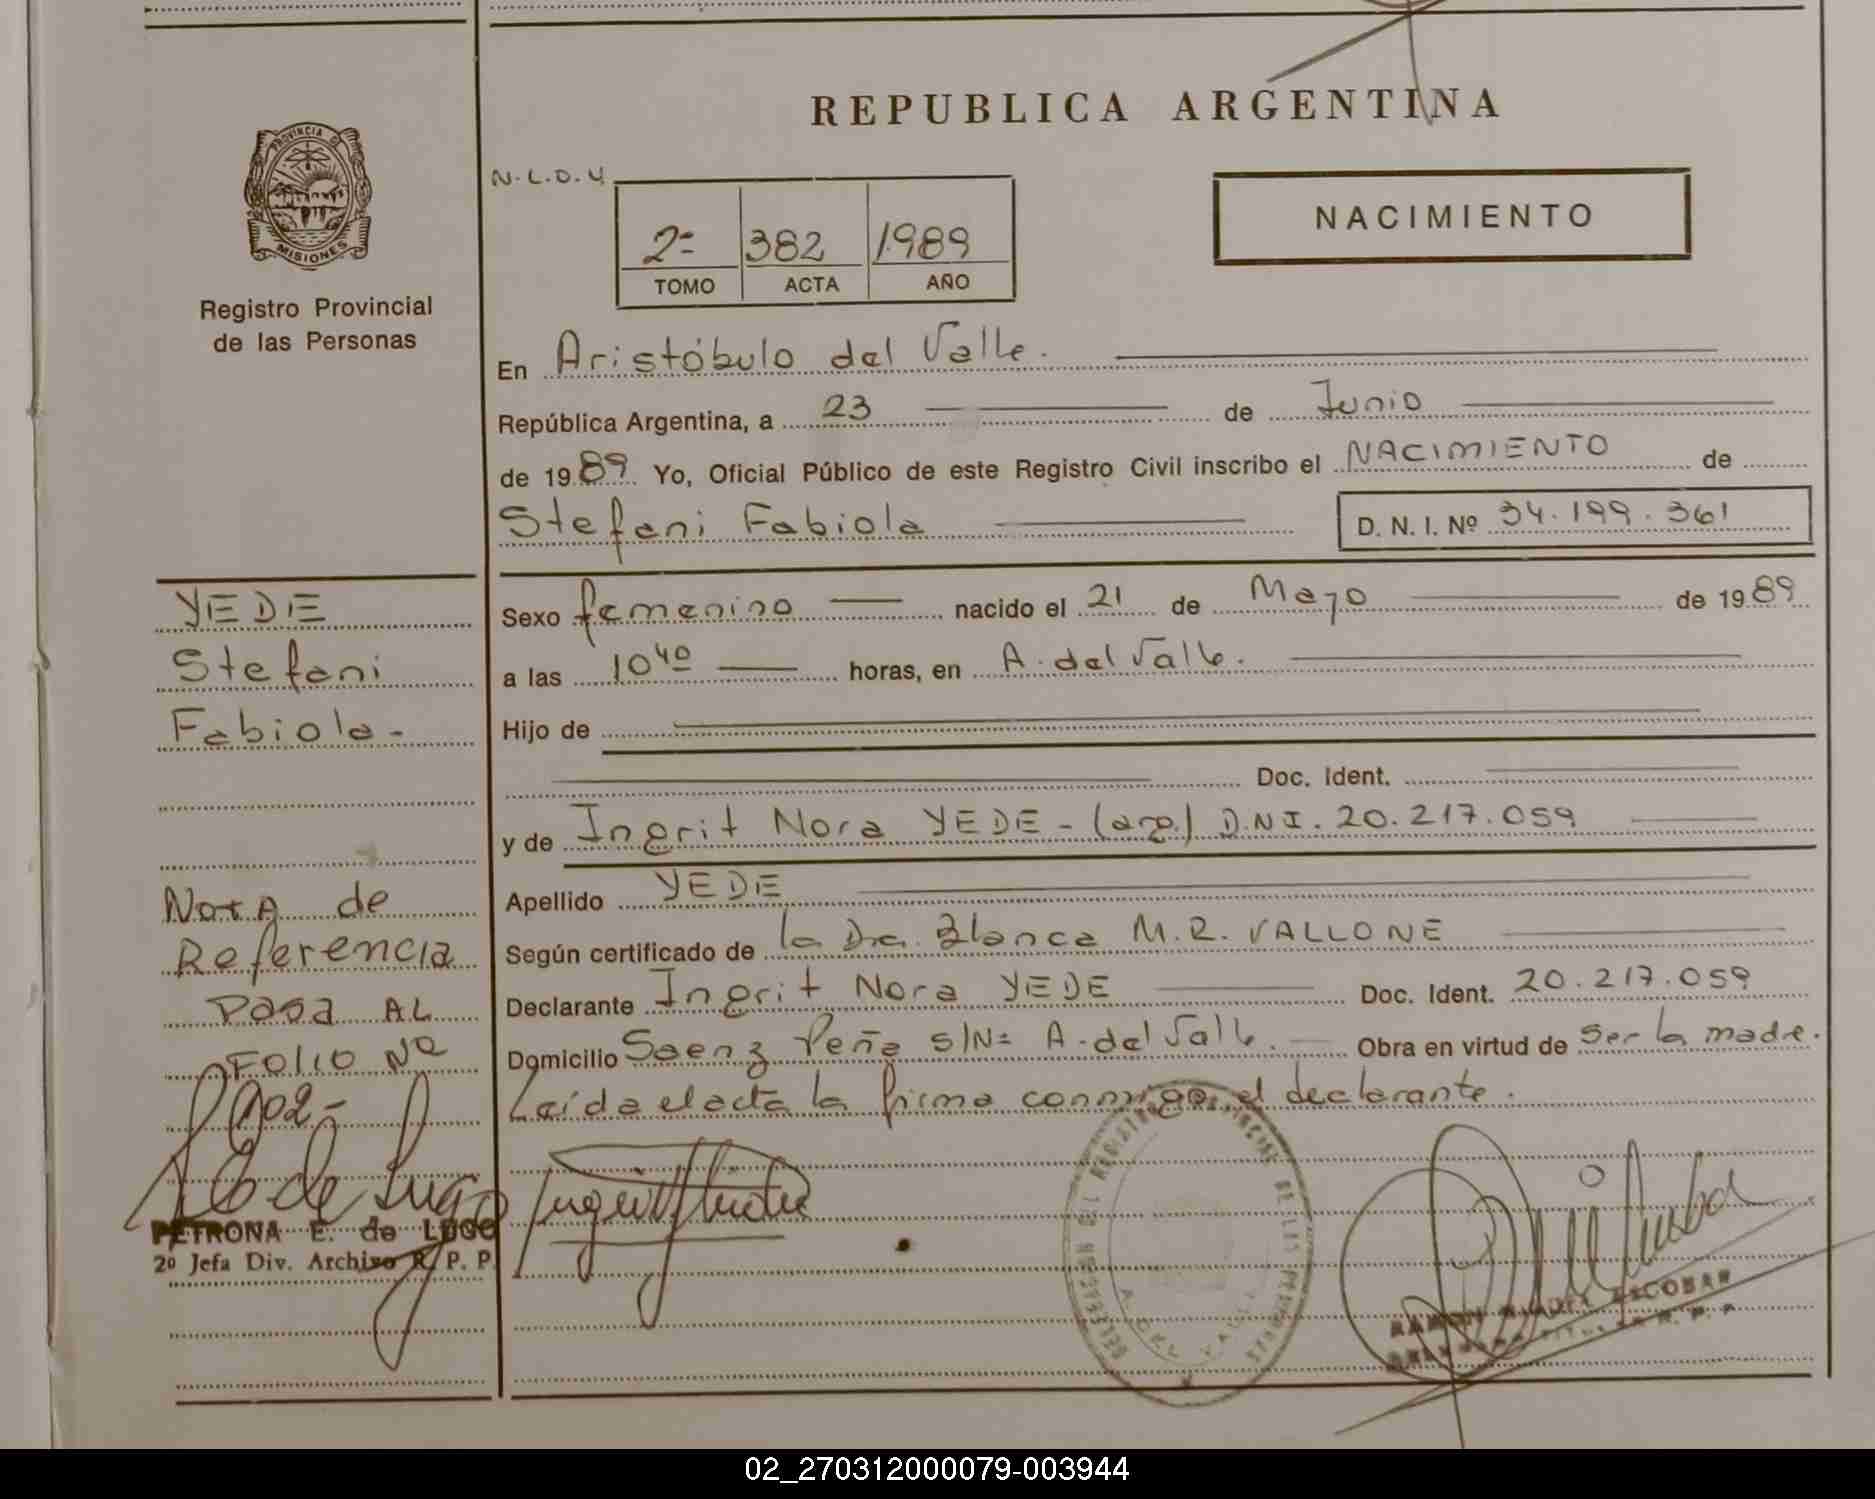 REPUBLICA ARGENTINA
PROVINCIA DE
MISIONES
Registro Provincial
de las Personas
N.L.O.Y
2= 382 1989
TOMO ACTA AÑO
NACIMIENTO
En Aristóbulo del Valle.
República Argentina, a 23 de Junio
de 1989 Yo, Oficial Público de este Registro Civil inscribo el NACIMIENTO de
Stefani Fabiola D. N. I. Nº 34.199.361
YEDE
Stefani
Fabiola-
Sexo femenino nacido el 21 de Mayo de 1989
a las 10 40 horas, en A. del Valle.
Hijo de
Doc. Ident.
y de Ingrit Nora YEDE - (arg.) D.N.I. 20.217.059
Apellido YEDE
Según certificado de la Dra. Blanca M.R. VALLONE
Declarante Ingrit Nora YEDE Doc. Ident. 20.217.059
Domicilio Saenz Peña S/N= A. del Valle. Obra en virtud de ser la madre.
Leída el acta la firma conmigo el declarante.
Nota de
Referencia
Pasa AL
Folio Nº
902-
PETRONA E. de LUGO
2º Jefa Div. Archivo R. P. P.
RAMON MIGUEL ESCOBAR
02_270312000079-003944